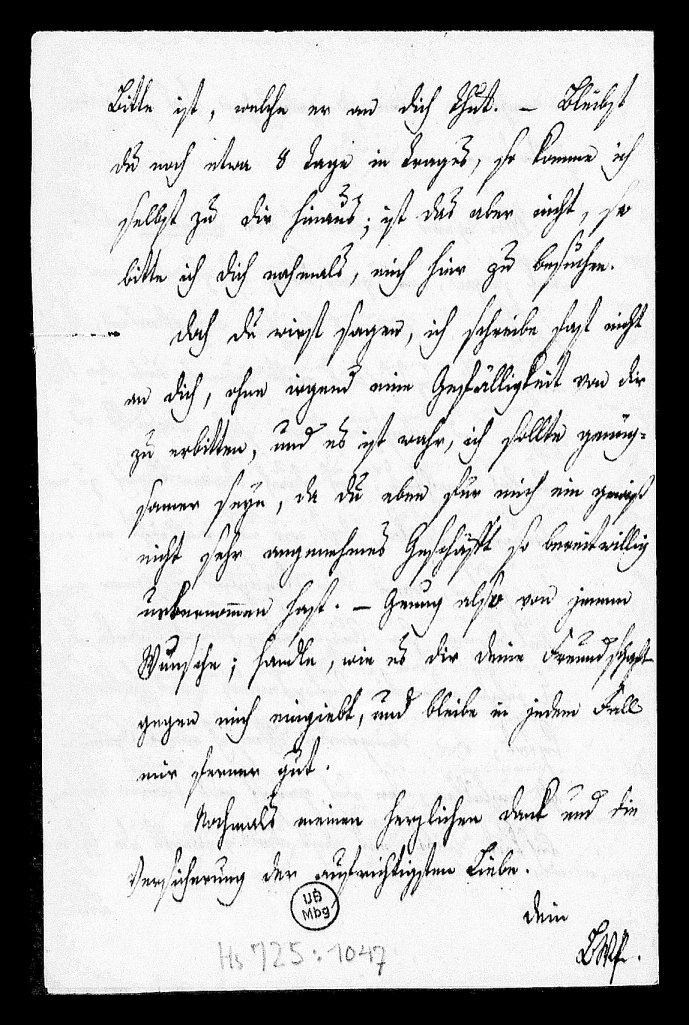 Bitte ist, welche er an dich thut. – Bleibst
du noch etwa 8 Tage in Trages, so komme ich
selbst zu dir hinaus; ist das aber nicht, so
bitte ich dich nochmals, mich hier zu besuchen.
Doch du wirst sagen, ich schreibe fast nicht
an dich, ohne irgend eine Gefälligkeit von dir
zu erbitten, und es ist wahr, ich sollte genüg-
samer seyn, da du eben für mich ein gewiß
nicht sehr angenehmes Geschäft so bereitwillig
übernommen hast. – Genug also von jenem
Wunsche; handle, wie es dir deine Freundschaft
gegen mich eingiebt, und bleibe in jedem Fall
mir ferner gut.
Nochmals meinen herzlichen Dank und die
Versicherung der aufrichtigsten Liebe.
Dein
UB
Mbg
Hs 725:1047